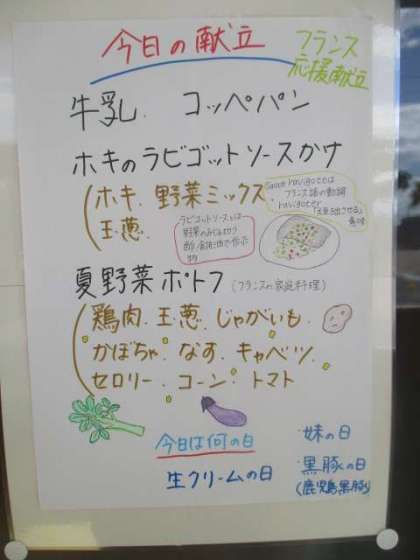 今日の献立
フランス
応援献立
牛乳. コッペパン
ホキのラビゴットソースかけ
(ホキ. 野菜ミックス
玉葱.
Sauce ravigoteは
フランス語の動詞
ravigoter
「元気を出させる」
意味
ラビゴットソースとは
野菜のみじん切り
酢.
夏野菜ポトフ (フランスの家庭料理)
(鶏肉. 玉葱. じゃがいも.
かぼちゃ. なす. キャベツ.
セロリー. コーン. トマト
今日は何の日
生クリームの日
・妹の日
・黒豚の日
(鹿児島黒豚)